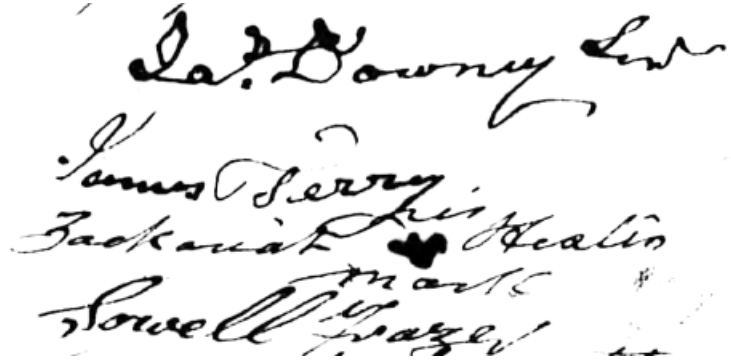 Jas. Downey Senr
James Berry
his
Zackariah Healin
mark
Sowell Frazer